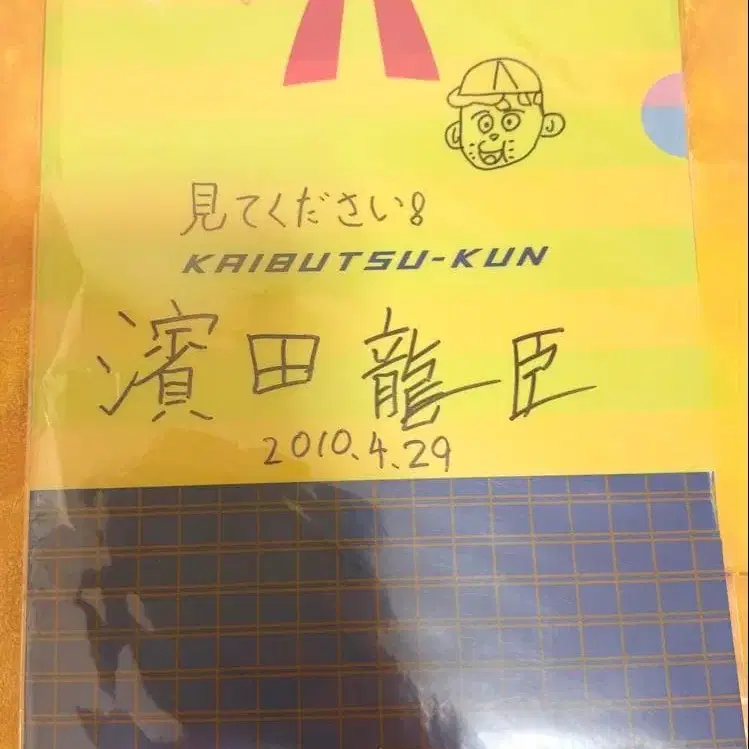 見てください!
KAIBUTSU-KUN
濱田龍臣
2010.4.29